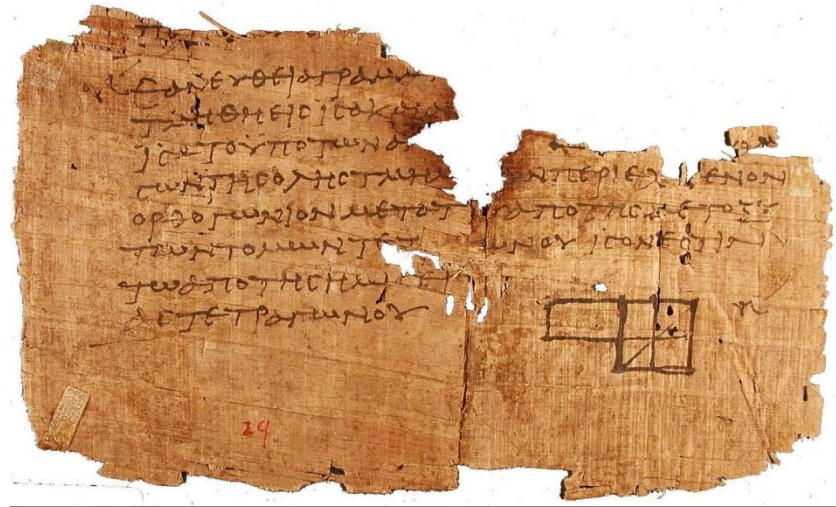 ΕΑΝ ΕΥΘΕΙΑ ΓΡΑΜΜ
ΤΜΗΘΗ ΕΙϹ ΙϹΑ ΚΑΙ ΑΝ
ΙϹΑ ΤΟ ΥΠΟ ΤΩΝ Α
ϹΩΝ ΤΗϹ ΟΛΗϹ ΤΜΗΜ ΩΝ ΠΕΡΙΕΧ ΜΕΝΟΝ
ΟΡΘΟΓΩΝΙΟΝ ΜΕΤΟ Τ Υ ΑΠΟ ΤΗϹ ΜΕΤΟΞΥ
ΤΩΝ ΤΟΜΩΝ ΤΕΤ ΩΝΟΥ ΙϹΟΝ ΕϹΤΙΝ
ΤΩ ΑΠΟ ΤΗϹ ΗΜΙ
ΑϹ ΤΕΤΡΑΓΩΝΟΥ
29